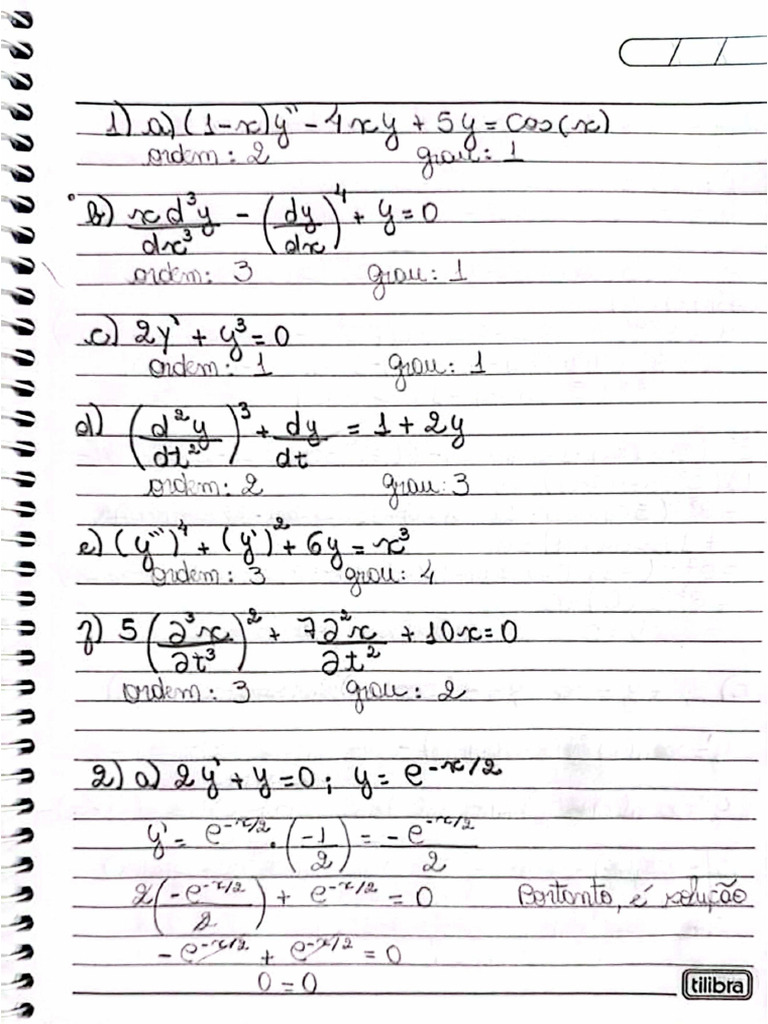 1) a) (1-x)y'' - 4xy + 5y = cos(x)
ordem: 2 grau: 1
b) x d³y/dx³ - (dy/dx)⁴ + y = 0
ordem: 3 grau: 1
c) 2y' + y³ = 0
ordem: 1 grau: 1
d) (d²y/dt²)³ + dy/dt = 1 + 2y
ordem: 2 grau: 3
e) (y''')⁴ + (y')² + 6y = x³
ordem: 3 grau: 4
f) 5(∂³x/∂t³)² + 7∂²x/∂t² + 10x = 0
ordem: 3 grau: 2
2) a) 2y' + y = 0; y = e^(-x/2)
y' = e^(-x/2) · (-1/2) = -e^(-x/2)/2
2(-e^(-x/2)/2) + e^(-x/2) = 0 Portanto, é solução
-e^(-x/2) + e^(-x/2) = 0
0 = 0
tilibra